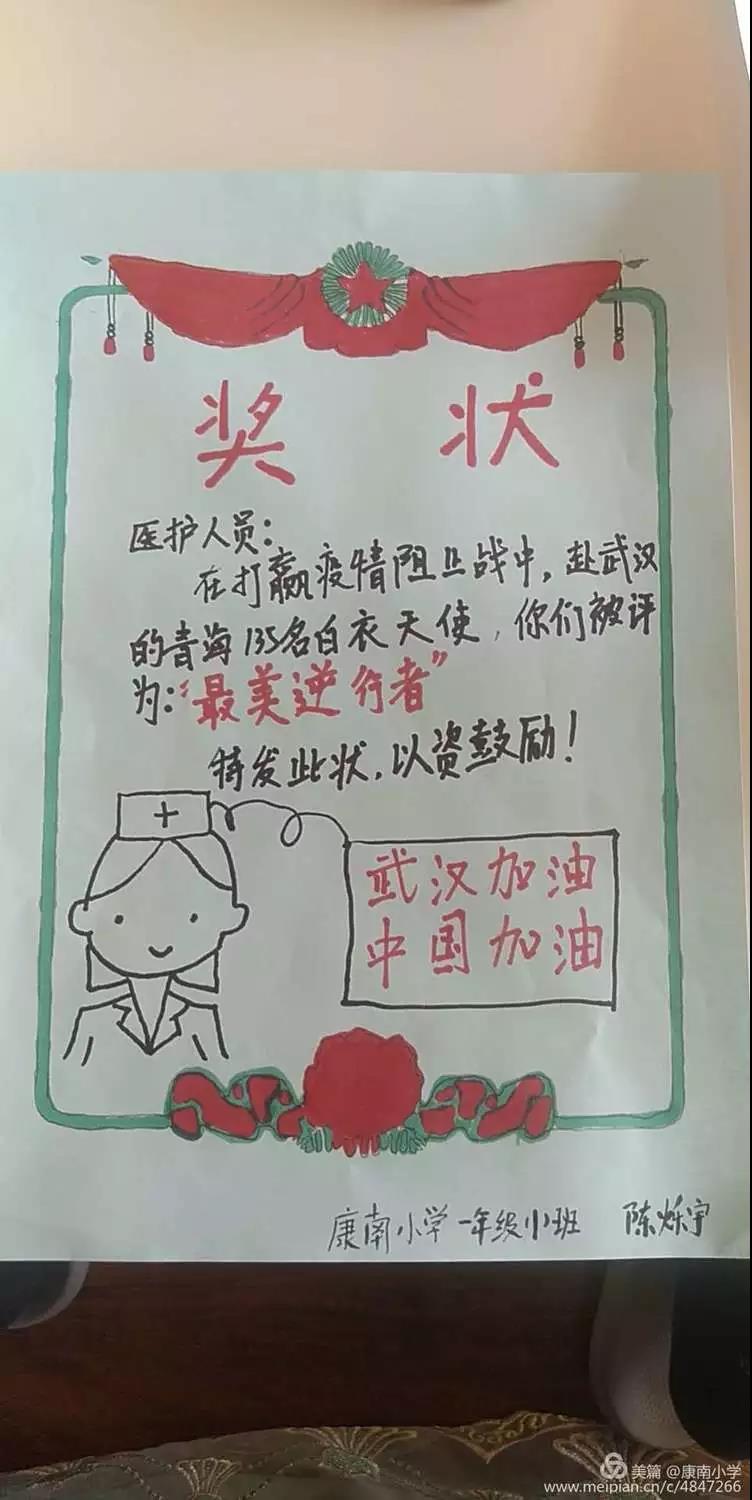 奖 状
医护人员:
在打赢疫情阻止战中,赴武汉
的青海135名白衣天使,你们被评
为:“最美逆行者”
特发此状,以资鼓励!
武汉加油
中国加油
康南小学一年级(1)班 陈烁宇
美篇 @康南小学
www.meipian.cn/c/4847266